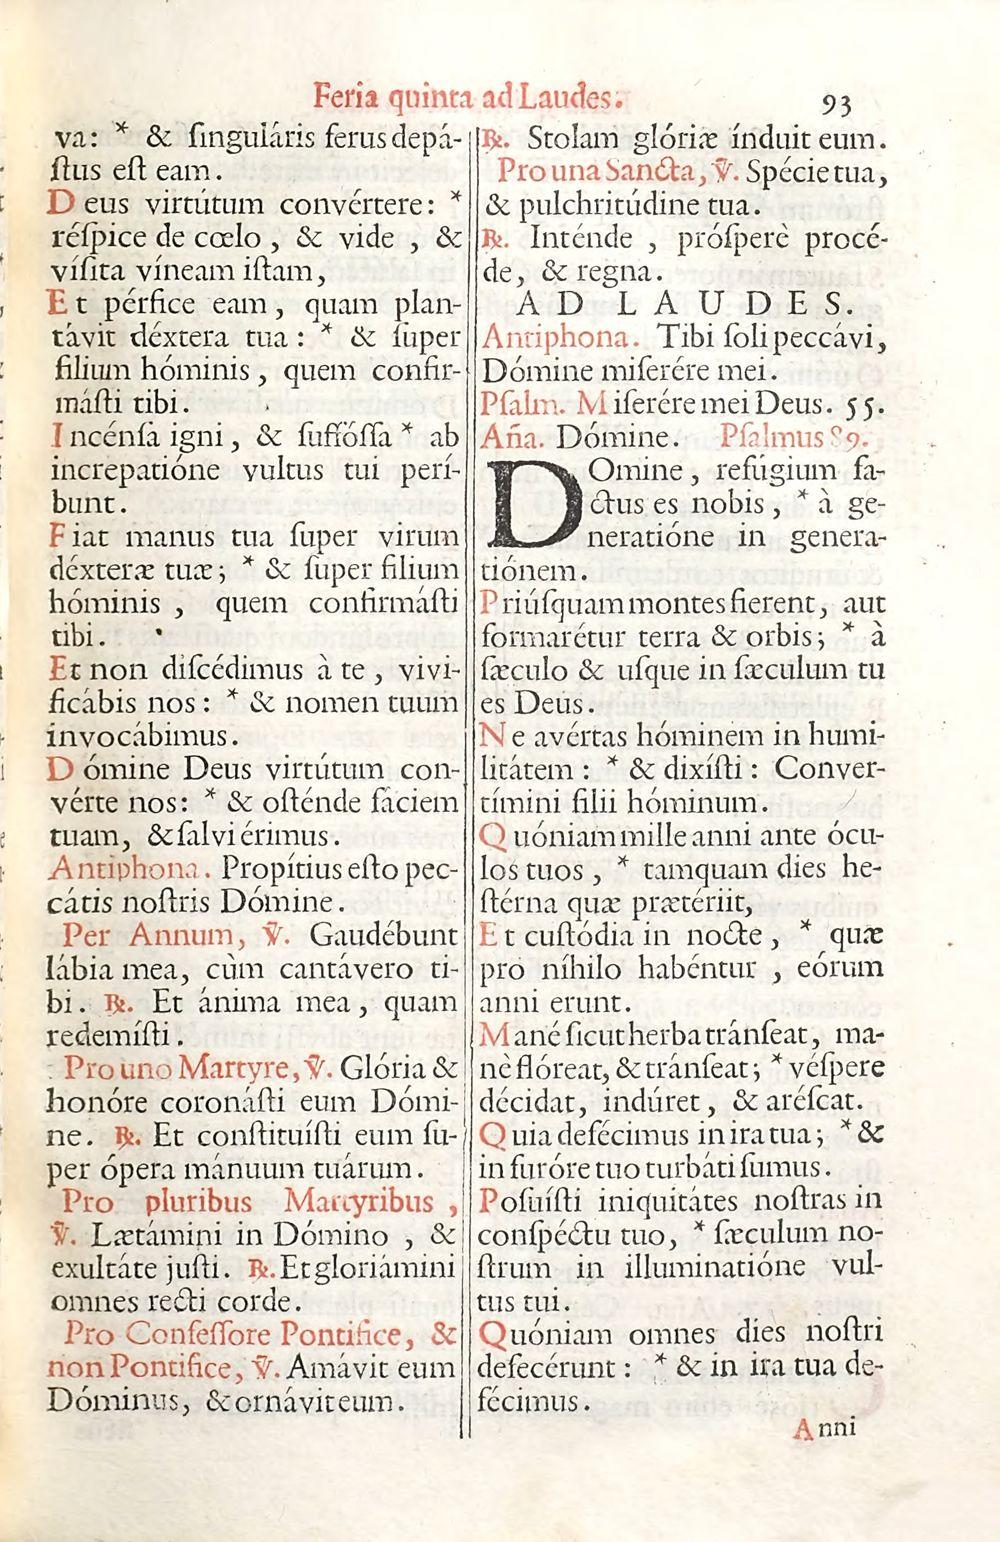 Feria quinta ad Laudes. 93
va: * & ſinguláris ferus depá-
ſtus eſt eam.
Deus virtútum convértere: *
réſpice de cœlo, & vide, &
víſita víneam iſtam,
Et pérfice eam, quam plan-
távit déxtera tua: * & ſuper
filium hóminis, quem confir-
máſti tibi.
Incénſa igni, & ſuffóſſa * ab
increpatióne vultus tui perí-
bunt.
Fiat manus tua ſuper virum
déxteræ tuæ; * & ſuper filium
hóminis, quem confirmáſti
tibi.
Et non diſcédimus à te, vivi-
ficábis nos: * & nomen tuum
invocábimus.
Dómine Deus virtútum con-
vérte nos: * & oſténde fáciem
tuam, & ſalvi érimus.
Antiphona. Propítius eſto pec-
cátis noſtris Dómine.
Per Annum, ℣. Gaudébunt
lábia mea, cùm cantávero ti-
bi. ℟. Et ánima mea, quam
redemíſti.
Pro uno Martyre, ℣. Glória &
honóre coronáſti eum Dómi-
ne. ℟. Et conſtituíſti eum ſu-
per ópera mánuum tuárum.
Pro pluribus Martyribus,
℣. Lætámini in Dómino, &
exultáte juſti. ℟. Et gloriámini
omnes recti corde.
Pro Confeſſore Pontifice, &
non Pontifice, ℣. Amávit eum
Dóminus, & ornávit eum.
℟. Stolam glóriæ índuit eum.
Pro una Sancta, ℣. Spécie tua,
& pulchritúdine tua.
℟. Inténde, próſperè procé-
de, & regna.
AD LAUDES.
Antiphona. Tibi ſoli peccávi,
Dómine miſerére mei.
Pſalm. Miſerére mei Deus. 55.
Aña. Dómine. Pſalmus 89.
DOmine, refúgium fa-
ctus es nobis, * à ge-
neratióne in genera-
tiónem.
Priúſquam montes fierent, aut
formarétur terra & orbis; * à
ſæculo & uſque in ſæculum tu
es Deus.
Ne avértas hóminem in humi-
litátem: * & dixíſti: Conver-
tímini filii hóminum.
Quóniam mille anni ante ócu-
los tuos, * tamquam dies he-
ſtérna quæ prætériit,
Et cuſtódia in nocte, * quæ
pro níhilo habéntur, eórum
anni erunt.
Mané ſicut herba tránſeat, ma-
nè flóreat, & tránſeat; * véſpere
décidat, indúret, & aréſcat.
Quia defécimus in ira tua; * &
in furóre tuo turbáti ſumus.
Poſuíſti iniquitátes noſtras in
conſpéctu tuo, * ſæculum no-
ſtrum in illuminatióne vul-
tus tui.
Quóniam omnes dies noſtri
defecérunt: * & in ira tua de-
fécimus.
Anni